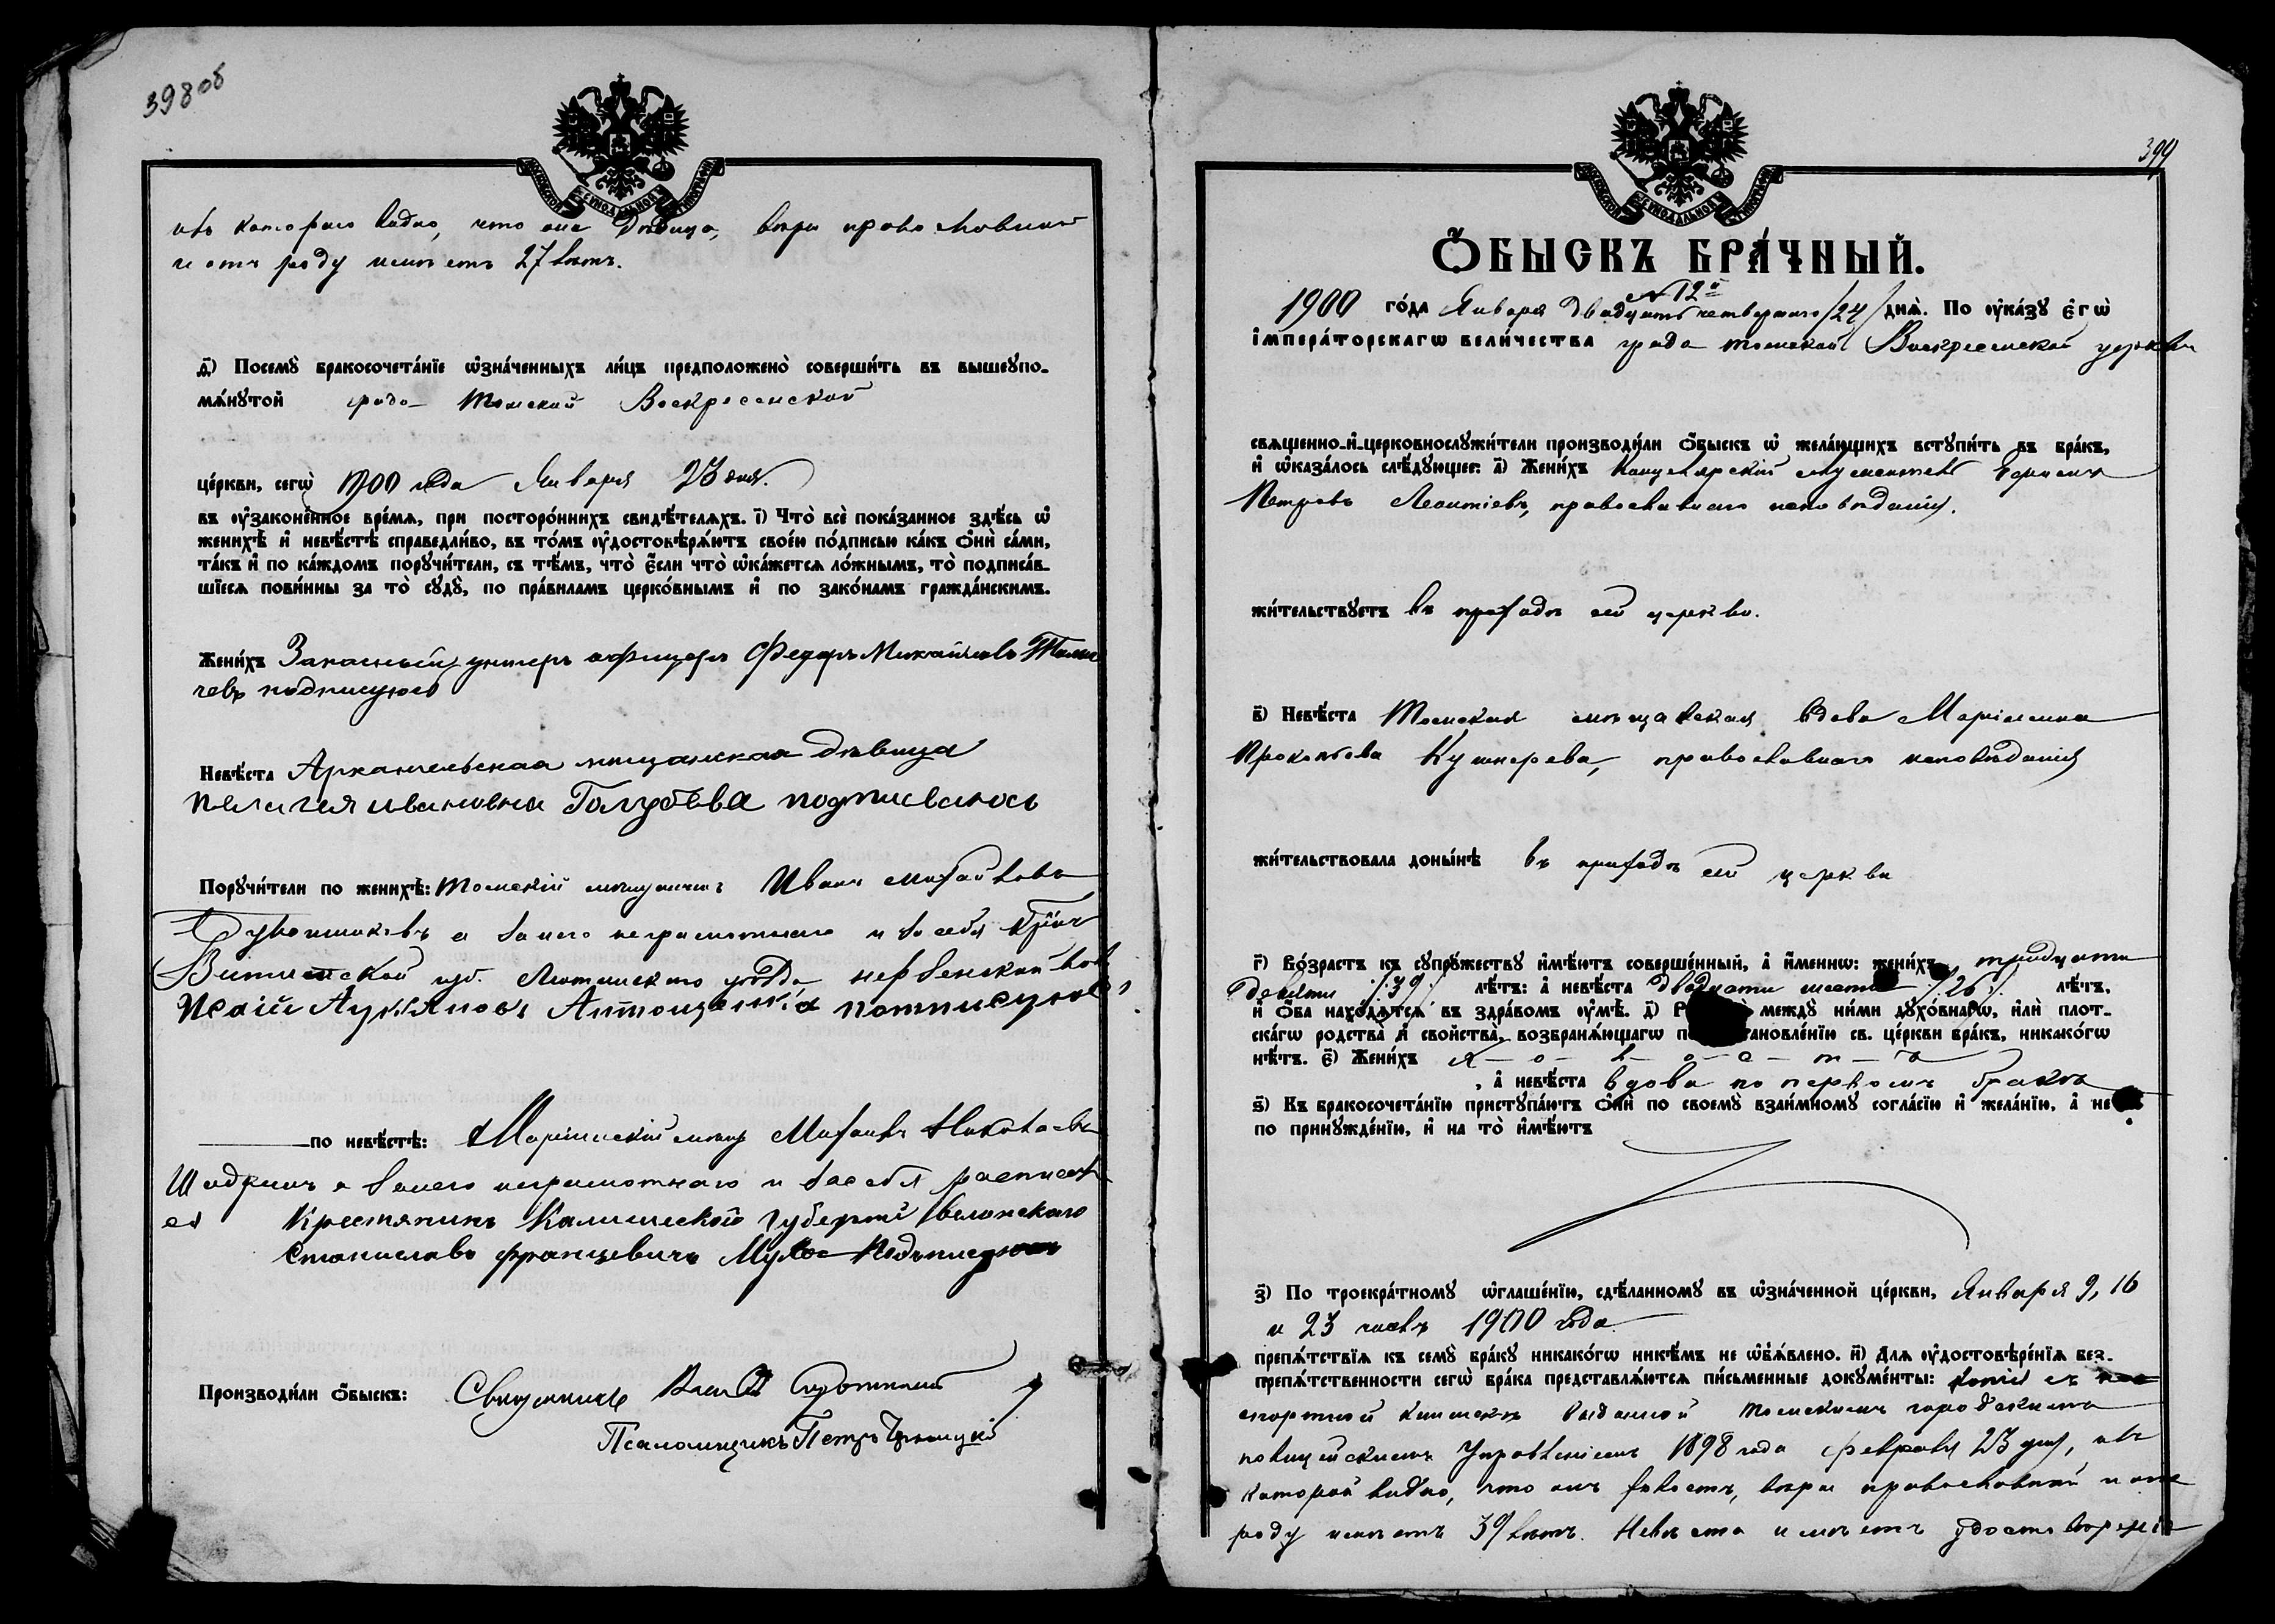 398 об
изъ котораго видно, что она дѣвица, вѣры православной
и отъ роду имѣетъ 27 лѣтъ.
д҃) Посемꙋ̀ бракосочета́нїе ѡ҆зна́ченныхъ ли́цъ предположено̀ соверши́ть въ вышеꙋпо-
мѧ́нꙋтой града Томской Воскресенской
це́ркви, сегѡ̀ 1900 года Января 23 дня.
въ ᲂу҆законе́нное вре́мѧ, при посторо́ннихъ свидѣ́телѧхъ. і҃) Что̀ всѐ пока́занное здѣ́сь ѡ҆
женихѣ̀ и҆ невѣ́стѣ справедли́во, въ то́мъ ᲂу҆достовѣрѧ́ютъ свое́ю по́дписью ка́къ ѻ҆нѝ са́ми,
та́къ и҆ по ка́ждомъ порꙋчи́тели, съ тѣ́мъ, что̀ є҆́сли что̀ ѡ҆ка́жетсѧ ло́жнымъ, то̀ подписа́в-
шїесѧ пови́нны за то̀ сꙋдꙋ̀, по пра́виламъ церко́внымъ и҆ по зако́намъ гражда́нскимъ.
Жени́хъ Запасный унтеръ офицеръ Федоръ Михайловъ
чевъ подписуюсь
Невѣ́ста Архангельская мещанская дѣвица
Пелагея Ивановна Голубева подписываюсь
Порꙋчи́тели по женихѣ̀: Томскій мѣщанинъ Иванъ Михайловъ
а за него неграмотнаго и за себя
губ. уѣзда
Антощенко потписуюсь
по невѣ́стѣ: Маріинскій мѣщ Михаилъ Николаевъ
Шадринъ а за него неграмотнаго и за себя расписал
ся Крестянинъ Калишской Губерніи
Станиславъ францевичъ Подписуюсь
Производи́ли ѻ҆́быскъ: Священникъ
Псаломщикъ Петръ
399
Ѻ҆́БЫСКЪ БРА́ЧНЫЙ.
№ 12й
1900 го́да Января двадцать четвертаго /24/ днѧ̀. По ᲂу҆ка́зꙋ є҆гѡ̀
і҆мпера́торскагѡ вели́чества града Томской Воскресенской церкви
свѧщенно-и҆-церковнослꙋжи́тели производи́ли ѻ҆́быскъ ѡ҆ жела́ющихъ встꙋпи́ть въ бра́къ,
и҆ ѡ҆каза́лось слѣ́дꙋющее: а҃) Жени́хъ Канцелярскій служитель
Петровъ Леонтіевъ, православнаго исповѣданія.
жи́тельствꙋетъ въ приходѣ сей церкви.
в҃) Невѣ́ста Томская мѣщанская вдова Маріамна
Прокопьева Кушнерева, православнаго исповѣданія
жи́тельствовала доны́нѣ въ приходѣ сей церкви
г҃) Во́зрастъ къ сꙋпрꙋ́жествꙋ и҆мѣ́ютъ соверше́нный, а҆ и҆́меннѡ: жени́хъ тридцати
девяти /39/ лѣ́тъ: а҆ невѣ́ста двадцати шести /26/ лѣ́тъ,
и҆ ѻ҆́ба нахо́дѧтсѧ въ здра́вомъ ᲂу҆мѣ̀. д҃) междꙋ̀ ни́ми дꙋхо́внагѡ, и҆лѝ плот-
ска́гѡ родства̀ и҆ свойства̀, возбранѧ́ющагѡ св. це́ркви бра́къ, никако́гѡ
нѣ́тъ. є҃) Жени́хъ х-о-л-о-с-т-ъ
, а҆ невѣ́ста вдова по первомъ бракѣ
ѕ҃) Къ бракосочета́нїю пристꙋпа́ютъ ѻ҆нѝ по своемꙋ̀ взаи́мномꙋ согла́сїю и҆ жела́нїю, а҆ не
по принꙋжде́нїю, и҆ на то̀ и҆мѣ́ютъ
з҃) По троекра́тномꙋ ѡ҆глаше́нїю, сдѣ́ланномꙋ въ ѡ҆зна́ченной це́ркви, Января 9, 16
и 23 чиселъ 1900 года
препѧ́тствїѧ къ семꙋ̀ бра́кꙋ никако́гѡ никѣ́мъ не ѡ҆б̾ѧ́влено. и҃) Длѧ ᲂу҆достовѣре́нїѧ без-
препѧ́тственности сегѡ̀ бра́ка представлѧ́ютсѧ пи́сьменные докꙋме́нты: копія съ пас
спортной книжки выданной Томскимъ городскимъ
полицейскимъ Управленіемъ 1898 года февраля 23 дня, изъ
которой видно, что онъ холостъ, вѣры православной и отъ
роду имѣетъ 39 лѣтъ. Невѣста имѣетъ удостовѣреніе